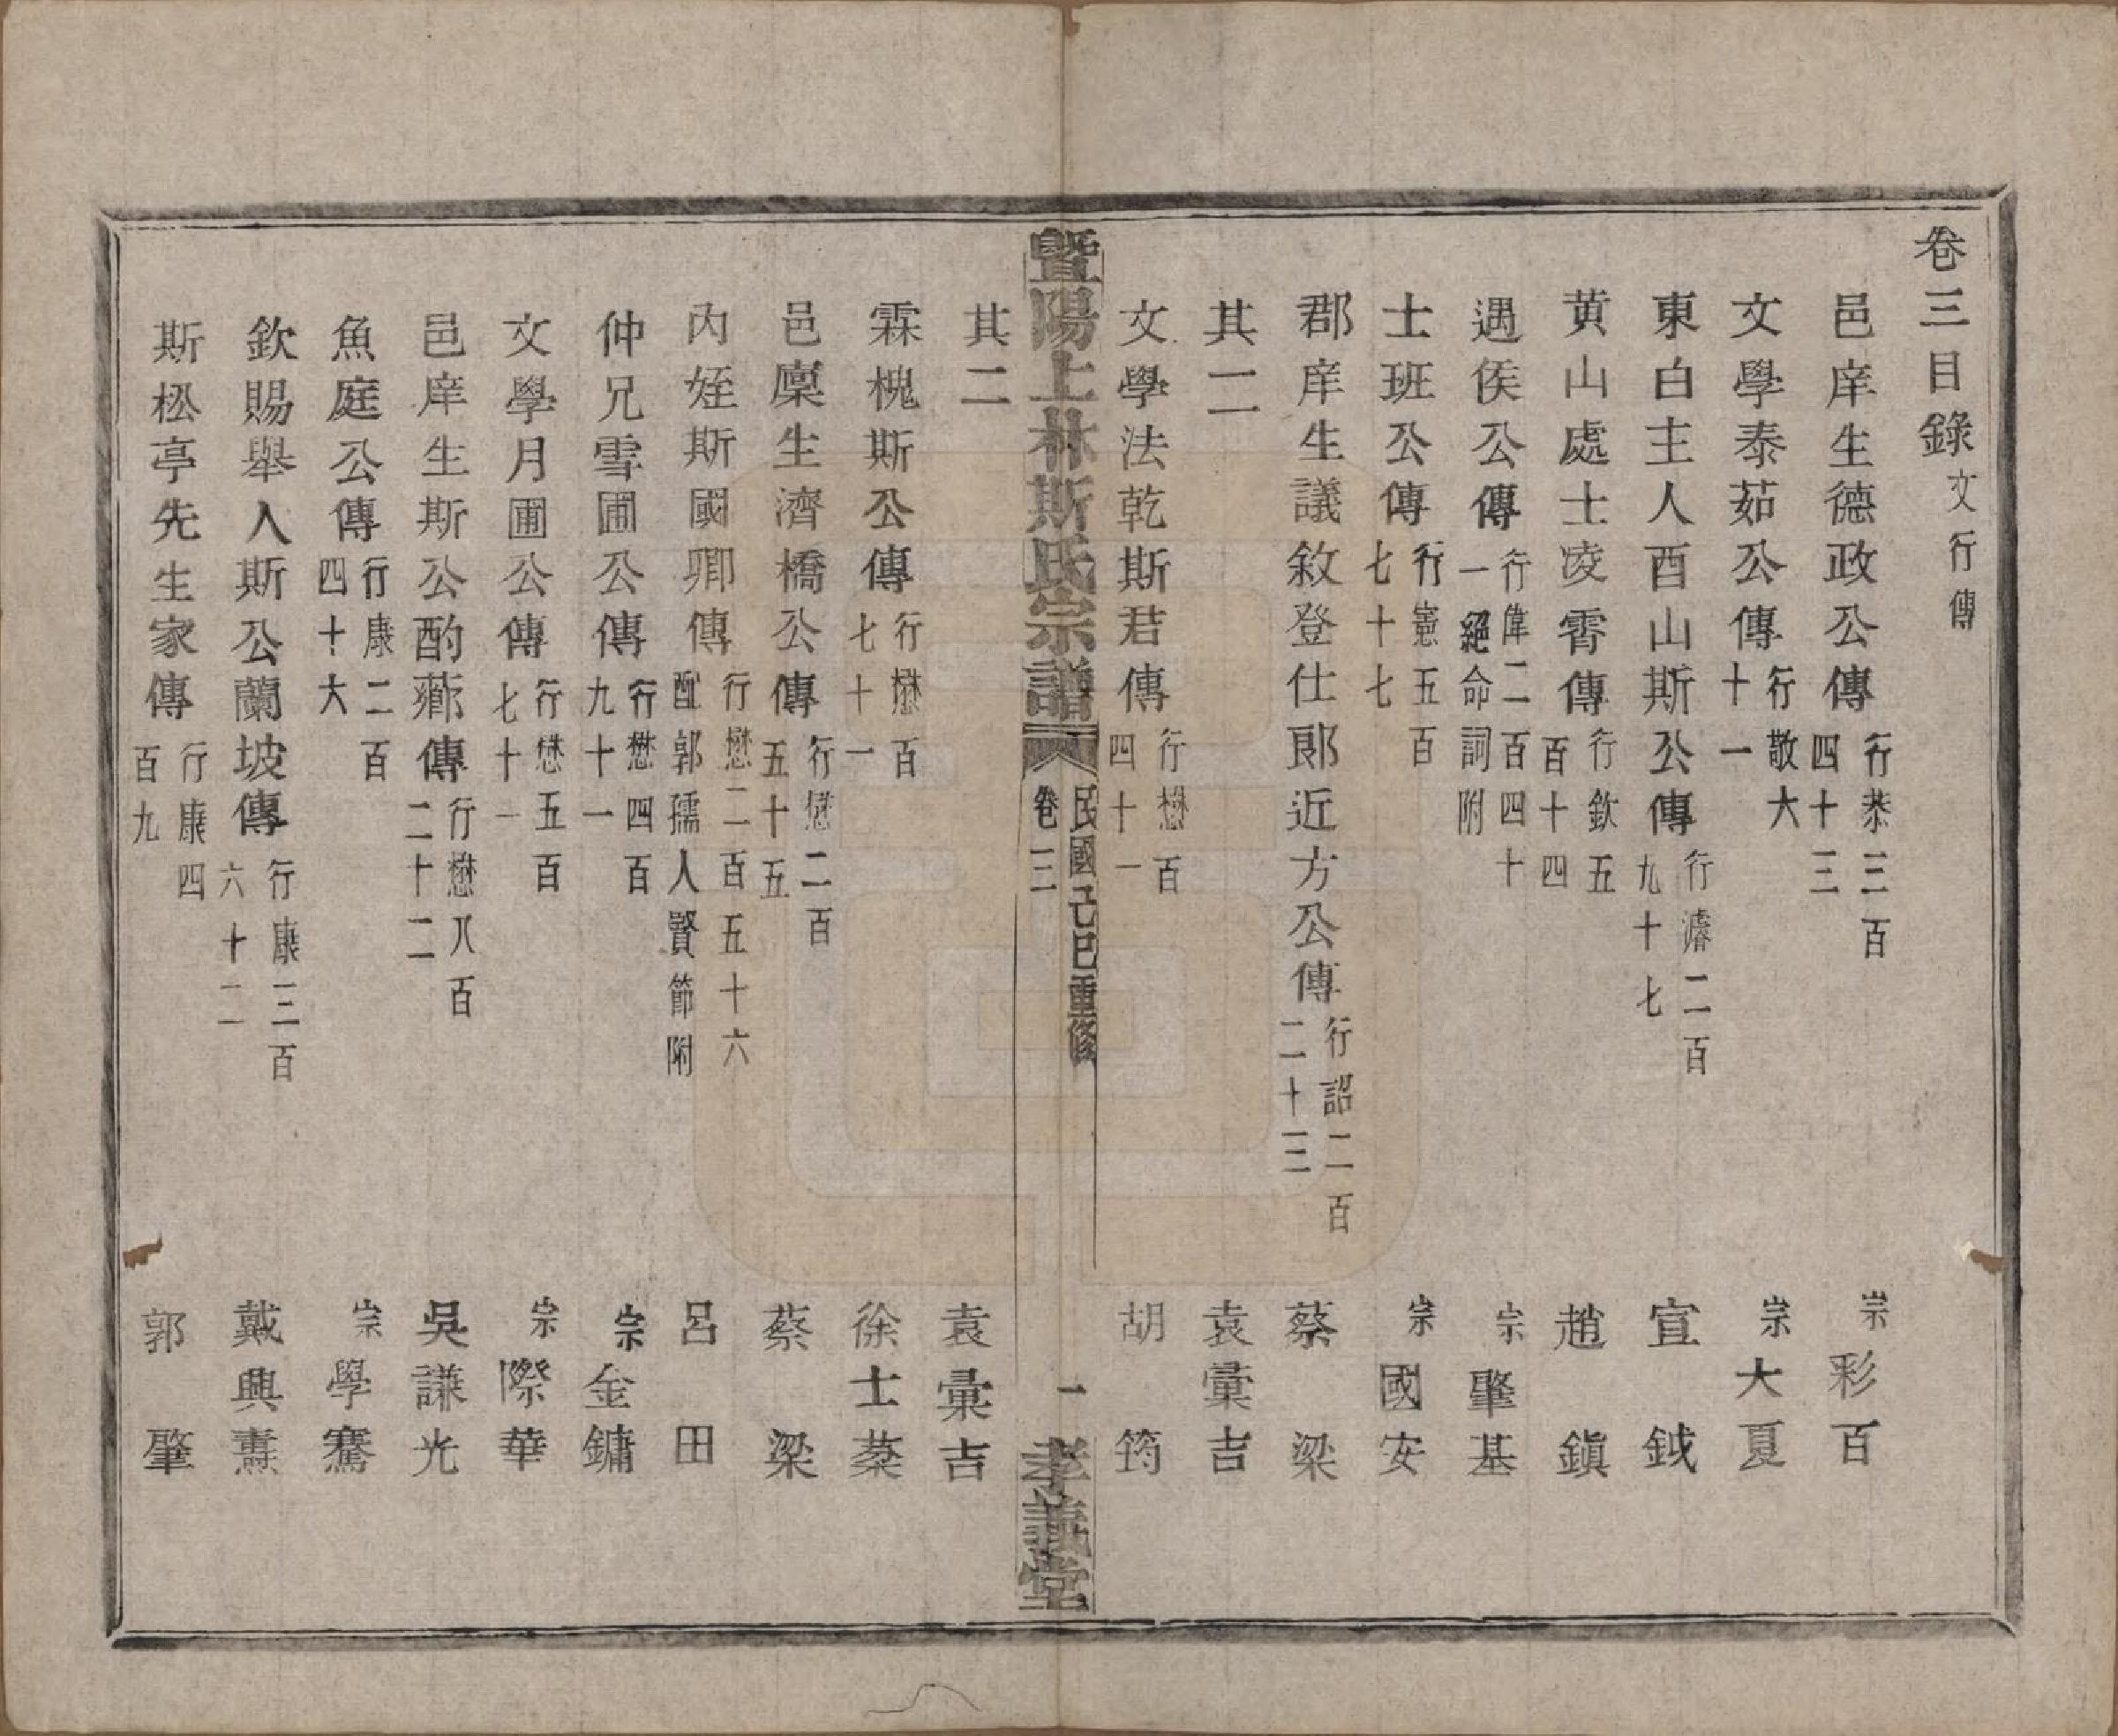 卷三目錄文行傳
邑庠生德政公傳行恭三百四十三 宗彩百
文學泰茹公傳行敬六十一 宗大夏
東白主人酉山斯公傳行濬二百九十七 宣鉞
黃山處士凌霄傳行欽五百十四 趙鎭
遇侯公傳行偉二百四十一絕命詞附 宗肇基
士班公傳行憲五百七十七 宗國安
郡庠生議敘登仕郎近方公傳行詔二百二十三 蔡梁
其二 袁彙吉
文學法乾斯君傳行懋百四十一 胡筠
暨陽上林斯氏宗譜 卷三 民國己巳重修 一 孝義堂
其二 袁彙吉
霖槐斯公傳行懋百七十一 徐士棻
邑廩生濟橋公傳行懋二百五十五 蔡梁
內姪斯國卿傳行懋二百五十六配郭孺人賢節附 呂田
仲兄雪圃公傳行懋四百九十一 宗金鏞
文學月圃公傳行懋五百七十一 宗際華
邑庠生斯公酌薌傳行懋八百二十二 吳謙光
魚庭公傳行康二百四十六 宗學騫
欽賜舉人斯公蘭坡傳行康三百六十二 戴興燾
斯松亭先生家傳行康四百九 郭肇